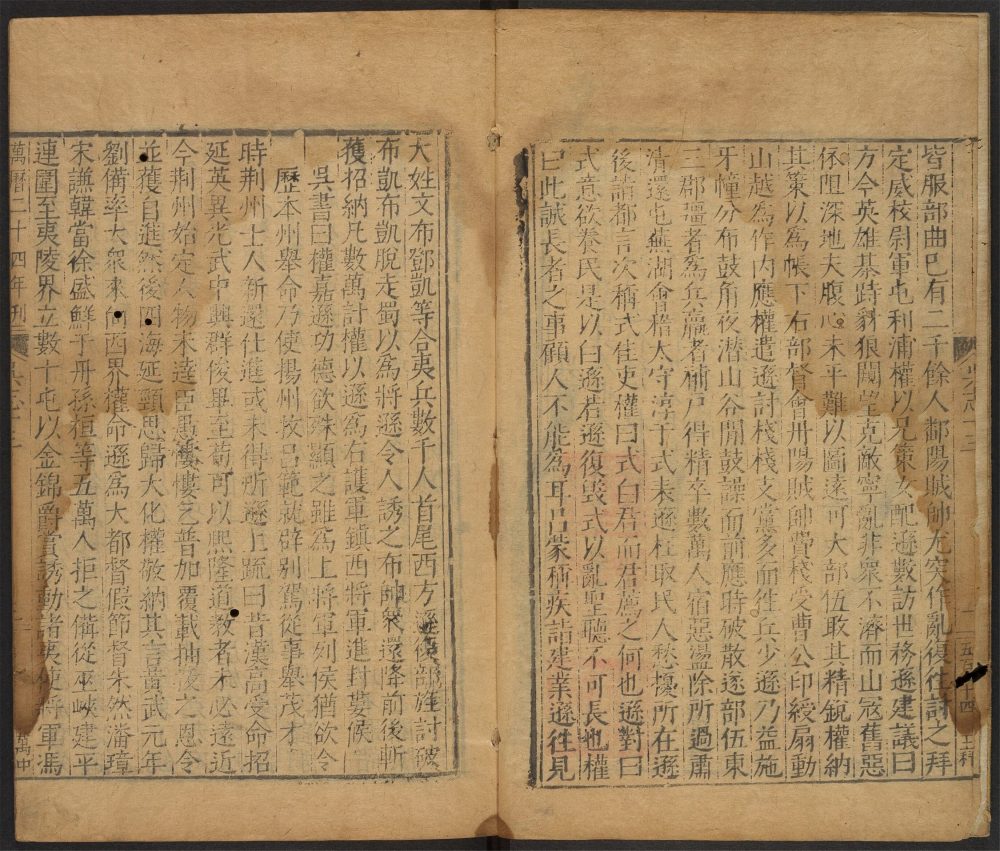 皆服部曲已有二千餘人鄱陽賊帥尤突作亂復往討之拜
定威校尉軍屯利浦權以兄策女配遜數訪世務遜建議曰
方今英雄棊跱豺狼闚望克敵寧亂非衆不濟而山宼舊惡
依阻深地夫腹心未平難以圖遠可大部伍取其精銳權納
其策以爲帳下右部督會丹陽賊帥費棧受曹公印綬扇動
山越爲作内應權遣遜討棧棧支黨多而往兵少遜乃益施
牙幢分布鼓角夜潜山谷間鼓譟而前應時破散遂部伍東
三郡彊者爲兵羸者補户得精卒數萬人宿惡盪除所過肅
清還屯蕪湖會稽太守淳于式表遜枉取民人愁擾所在遜
後詣都言次稱式佳吏權曰式白君而君薦之何也遜對曰
式意欲養民是以白遜若遜復毁式以亂聖聽不可長也權
曰此誠長者之事顧人不能爲耳吕蒙稱疾詣建業遜往見
大姓文布鄧凱等合夷兵數千人首尾西方遜復部旌討破
布凱布凱脱走蜀以爲將遜令人誘之布帥衆還降前後斬
獲招納凡數萬計權以遜爲右護軍鎮西將軍進封婁侯
吳書曰權嘉遜功德欲殊顯之雖爲上將軍列侯猶欲令
歷本州舉命乃使揚州牧吕範就辟别駕從事舉茂才
時荆州士人新還仕進或未得所遜上疏曰昔漢高受命招
延英異光武中興群俊畢至苟可以熙隆道教者未必遠近
今荆州始定人物未達臣愚慺慺乞普加覆載抽拔之恩令
並獲自進然後四海延頸思歸大化權敬納其言黄武元年
劉備率大衆來向西界權命遜爲大都督假節督朱然潘璋
宋謙韓當徐盛鮮于丹孫桓等五萬人拒之備從巫峽建平
連圍至夷陵界立數十屯以金錦爵賞誘動諸夷使將軍馮
萬曆二十四年刊